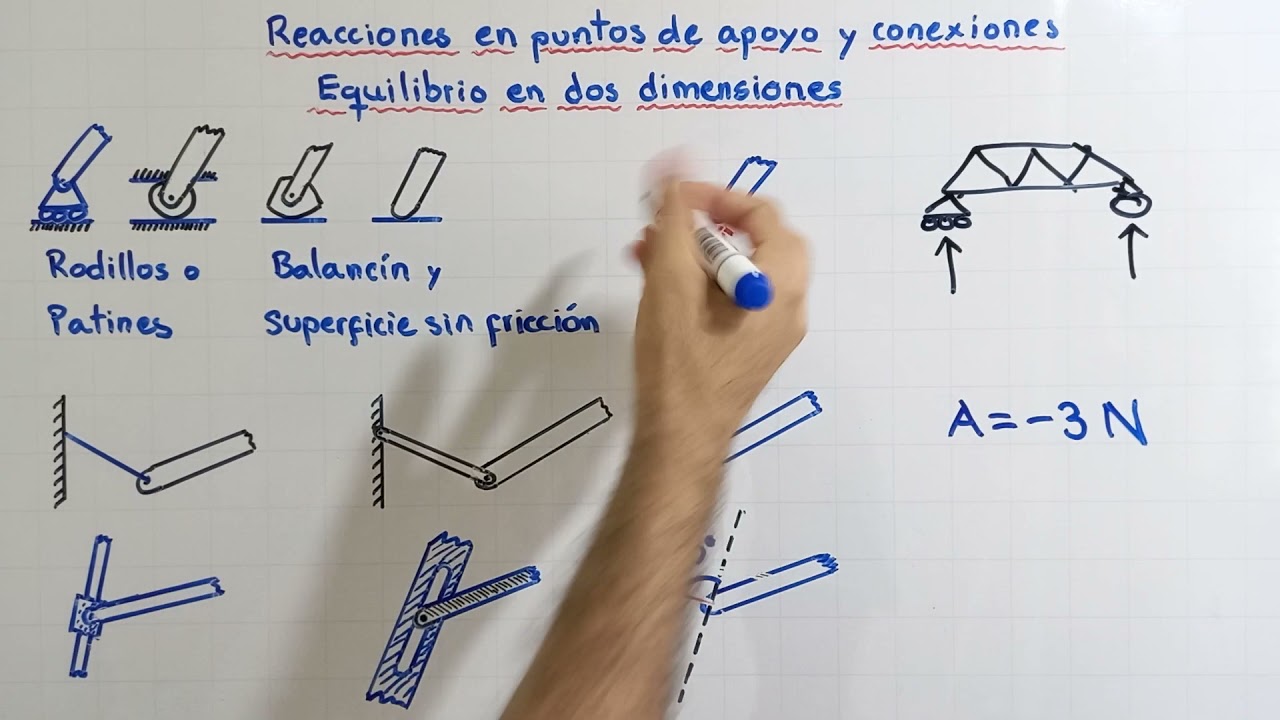 Reacciones en puntos de apoyo y conexiones
Equilibrio en dos dimensiones
Rodillos o
Patines
Balancín y
superficie sin fricción
A = -3 N